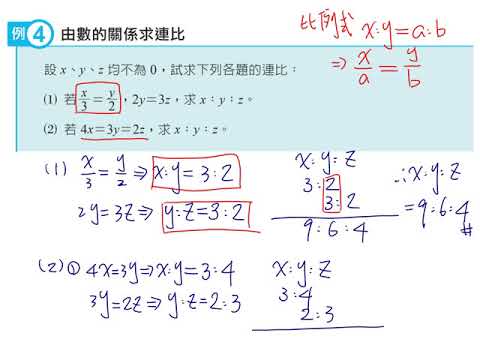 例4 由數的關係求連比
比例式 x:y=a:b
⇒ x/a = y/b
設 x、y、z 均不為 0，試求下列各題的連比：
(1) 若 x/3 = y/2，2y=3z，求 x：y：z。
(2) 若 4x=3y=2z，求 x：y：z。
(1) x/3 = y/2 ⇒ x:y=3:2
2y=3z ⇒ y:z=3:2
x:y:z
3:2
3:2
9:6:4
∴x:y:z
=9:6:4#
(2) ① 4x=3y⇒x:y=3:4
3y=2z⇒y:z=2:3
x:y:z
3:4
2:3